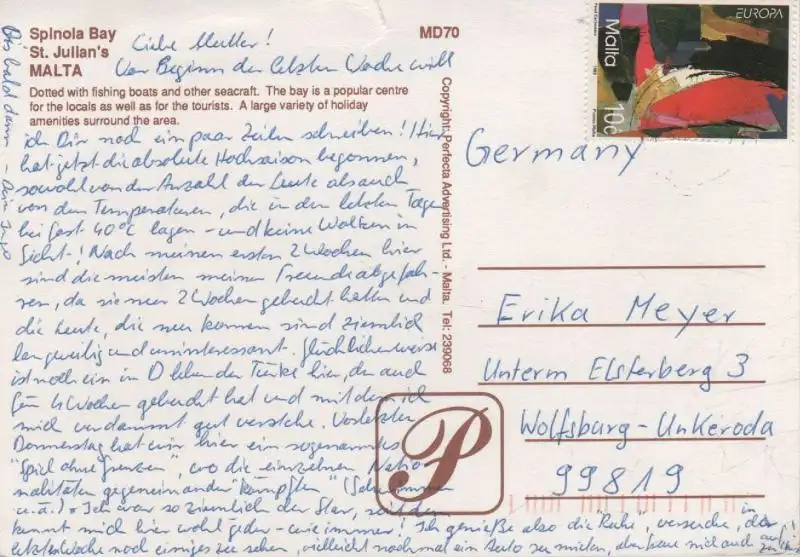 Spinola Bay
St. Julian's
MALTA
MD70
Dotted with fishing boats and other seacraft. The bay is a popular centre
for the locals as well as for the tourists. A large variety of holiday
amenities surround the area.
Liebe Mutter!
Vor Beginn der letzten Woche will
ich Dir noch ein paar Zeilen schreiben! Hier
hat jetzt die absolute Hochsaison begonnen,
sowohl von der Anzahl der Leute als auch
von den Temperaturen, die in den letzten Tagen
bei fast 40°C lagen - und keine Wolken in
Sicht-! Nach meinen ersten 2 Wochen hier
sind die meisten meiner Freunde abgefah-
ren, da sie nur 2 Wochen gebucht hatten und
die Leute, die neu kommen sind ziemlich
langweilig und uninteressant. Glücklicherweise
ist noch ein in D lebender Türke hier, der auch
für 4 Wochen gebucht hat und mit dem ich
mich verdammt gut verstehe. Vorletzten
Donnerstag hat hier ein sogenanntes
"Spiel ohne Grenzen", wo die einzelnen Natio-
nalitäten gegeneinander "kämpften" (Schwimmen
u.ä.). Ich war so ziemlich der Star, seitdem
kennt mich hier wohl jeder - wie immer! Ich genieße also die Ruhe, versuche, in der
letzten Woche noch einiges zu sehen, vielleicht nochmal ein Auto zu mieten, aber freue mich auch
Bis bald dann - Dein Ingo
Copyright: Perfecta Advertising Ltd. - Malta. Tel: 239068
EUROPA
Malta
10c
Germany
Erika Meyer
Unterm Elsterberg 3
Wolfsburg-Unkeroda
99819
P